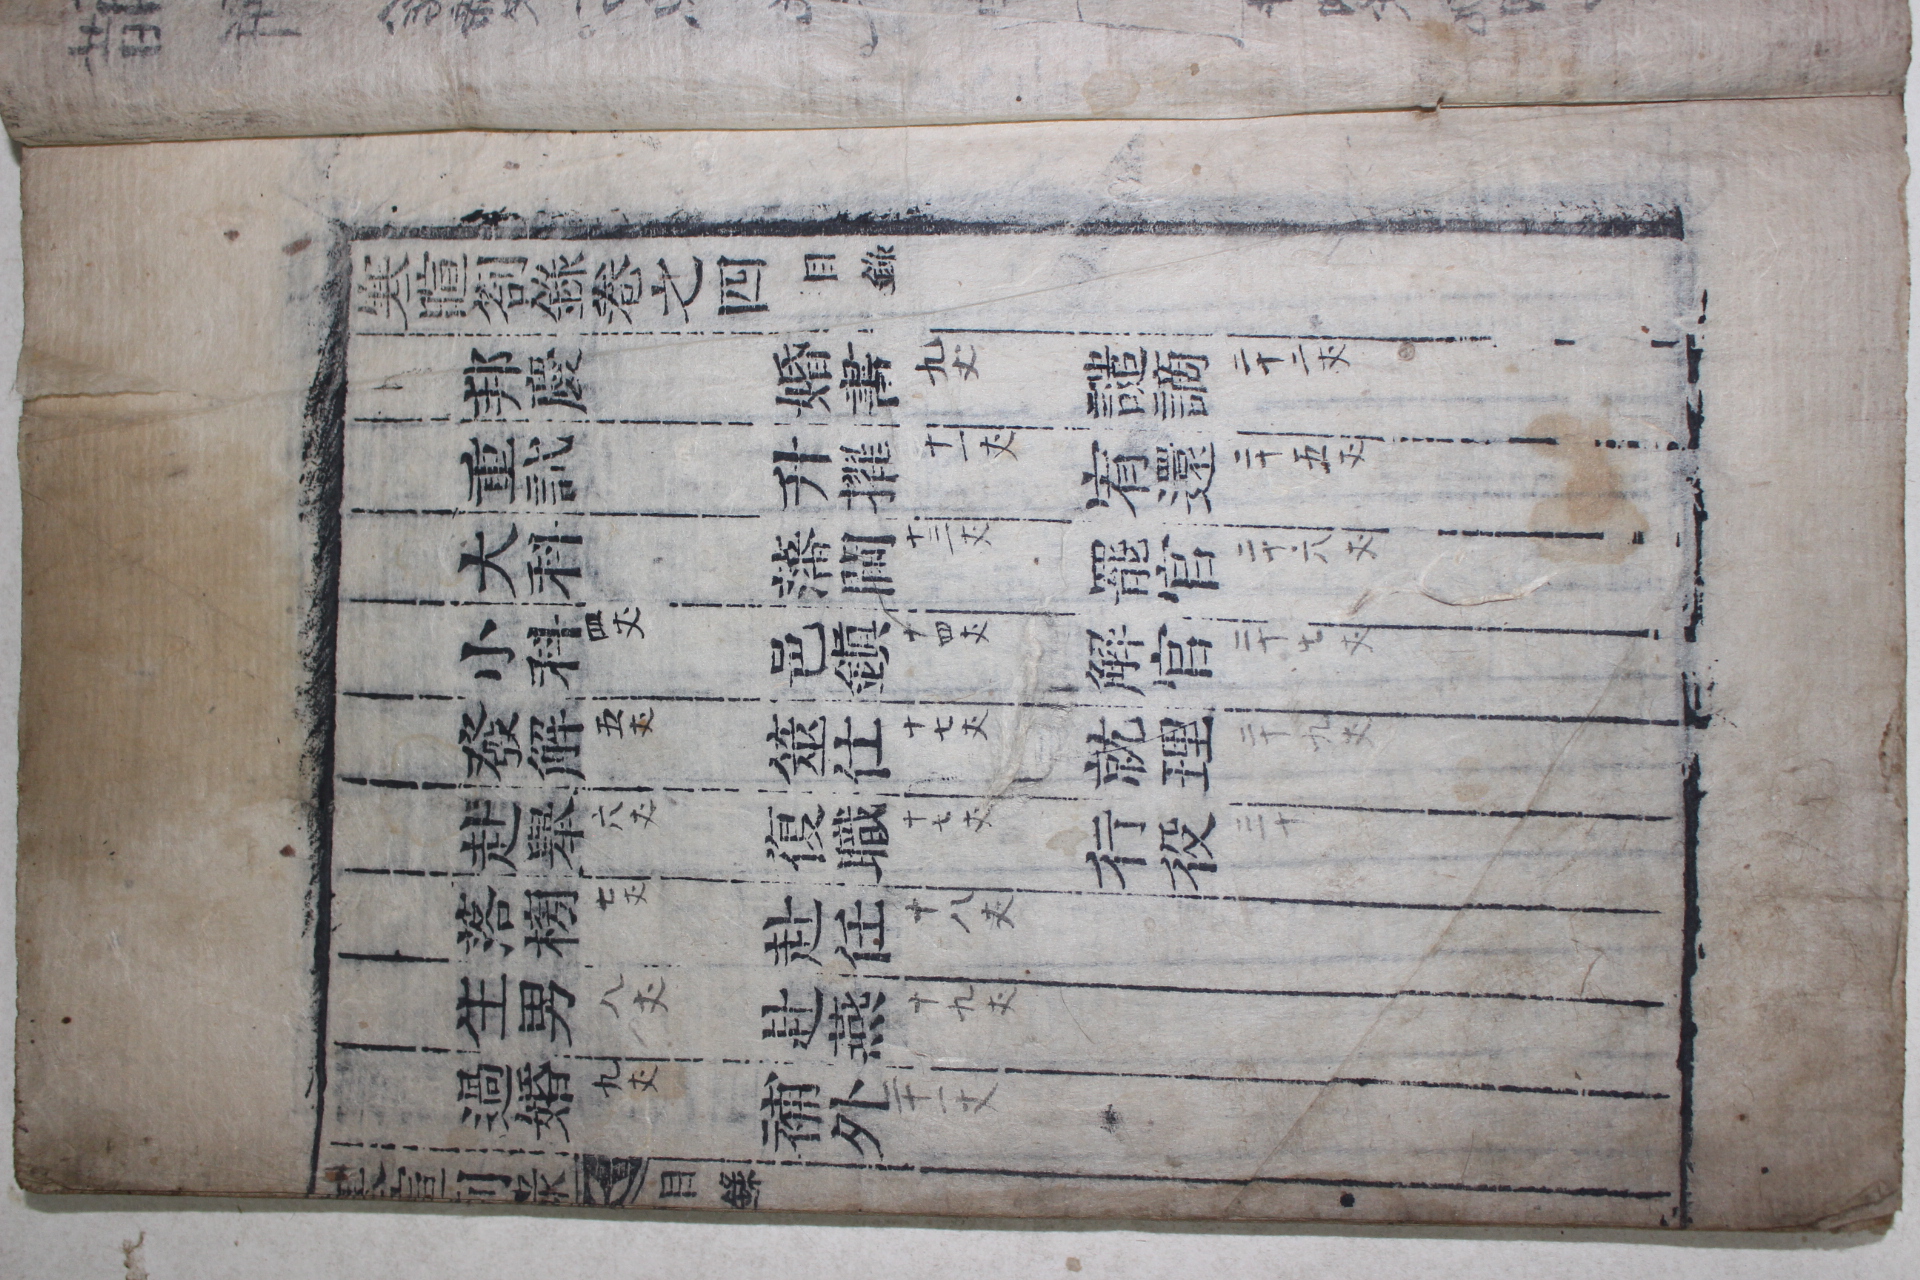 寒暄劄錄卷之四 目錄
邦慶 婚書 九丈 譴謫 二十二丈
重試 升擢 十一丈 宥還 二十五丈
大科 藩閫 十三丈 罷官 二十六丈
小科 四丈 邑鎭 十四丈 解官 二十七丈
發解 五丈 筮仕 十七丈 就理 二十九丈
赴舉 六丈 復職 十七丈 行役 三十
落榜 七丈 赴任 十八丈
生男 八丈 赴燕 十九丈
過婚 九丈 補外 二十一丈
目錄